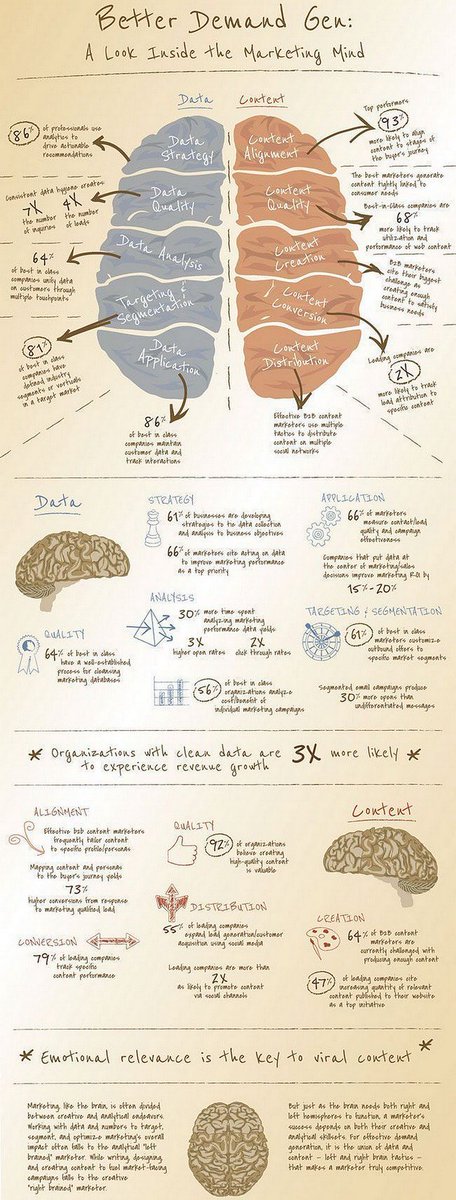 Better Demand Gen:
A Look Inside the Marketing Mind
Data
Content
86%
of professionals use
analytics to
drive actionable
recommendations
Consistent data hygiene creates
7X
the number
of inquiries
4X
the number
of leads
64%
of best in class
companies unify data
on customers through
multiple touchpoints
81%
of best in class
companies have
defined industry
segments or verticals
in a target market
86%
of best in class
companies maintain
customer data and
track interactions
Data
Strategy
Data
Quality
Data Analysis
Targeting &
Segmentation
Data
Application
Content
Alignment
Content
Quality
Content
Creation
Content
Conversion
Content
Distribution
Top performers
93%
more likely to align
content to stages of
the buyer's journey
The best marketers generate
content tightly linked to
consumer needs
Best-in-Class companies are
68%
more likely to track
utilization and
performance of web content
B2B marketers
cite their biggest
challenge as
creating enough
content to satisfy
business needs
Leading companies are
2X
more likely to track
lead attribution to
specific content
Effective B2B content
marketers use multiple
tactics to distribute
content on multiple
social networks
Data
STRATEGY
61% of businesses are developing
strategies to tie data collection
and analysis to business objectives
66% of marketers cite acting on data
to improve marketing performance
as a top priority
APPLICATION
66% of marketers
measure contact/lead
quality and campaign
effectiveness
Companies that put data at
the center of marketing/sales
decisions improve marketing ROI by
15%-20%
ANALYSIS
30% more time spent
analyzing marketing
performance data yields
3X
higher open rates
2X
click through rates
56% of best in class
organizations analyze
cost/benefit of
individual marketing campaigns
QUALITY
64% of best in class
have a well-established
process for cleansing
marketing databases
TARGETING & SEGMENTATION
61% of best in class
marketers customize
outbound offers to
specific market segments
Segmented email campaigns produce
30% more opens than
undifferentiated messages
* Organizations with clean data are 3X more likely *
to experience revenue growth
ALIGNMENT
Effective B2B content marketers
frequently tailor content
to specific profile/personas
Mapping content and personas
to the buyer's journey yields
73%
higher conversions from response
to marketing qualified lead
CONVERSION
79% of leading companies
track specific
content performance
QUALITY
92% of organizations
believe creating
high-quality content
is valuable
DISTRIBUTION
55% of leading companies
expand lead generation/customer
acquisition using social media
Leading companies are more than
2X
as likely to promote content
via social channels
Content
CREATION
64% of B2B content
marketers are
currently challenged with
producing enough content
47% of leading companies cite
increasing quantity of relevant
content published to their website
as a top initiative
* Emotional relevance is the key to viral content *
Marketing, like the brain, is often divided
between creative and analytical endeavors.
Working with data and numbers to target,
segment, and optimize marketing's overall
impact often falls to the analytical "left
brained" marketer. While writing, designing,
and creating content to fuel market-facing
campaigns falls to the creative
"right brained" marketer.
But just as the brain needs both right and
left hemispheres to function, a marketer's
success depends on both their creative and
analytical skillsets. For effective demand
generation, it is the union of data and
content – left and right brain tactics –
that makes a marketer truly competitive.